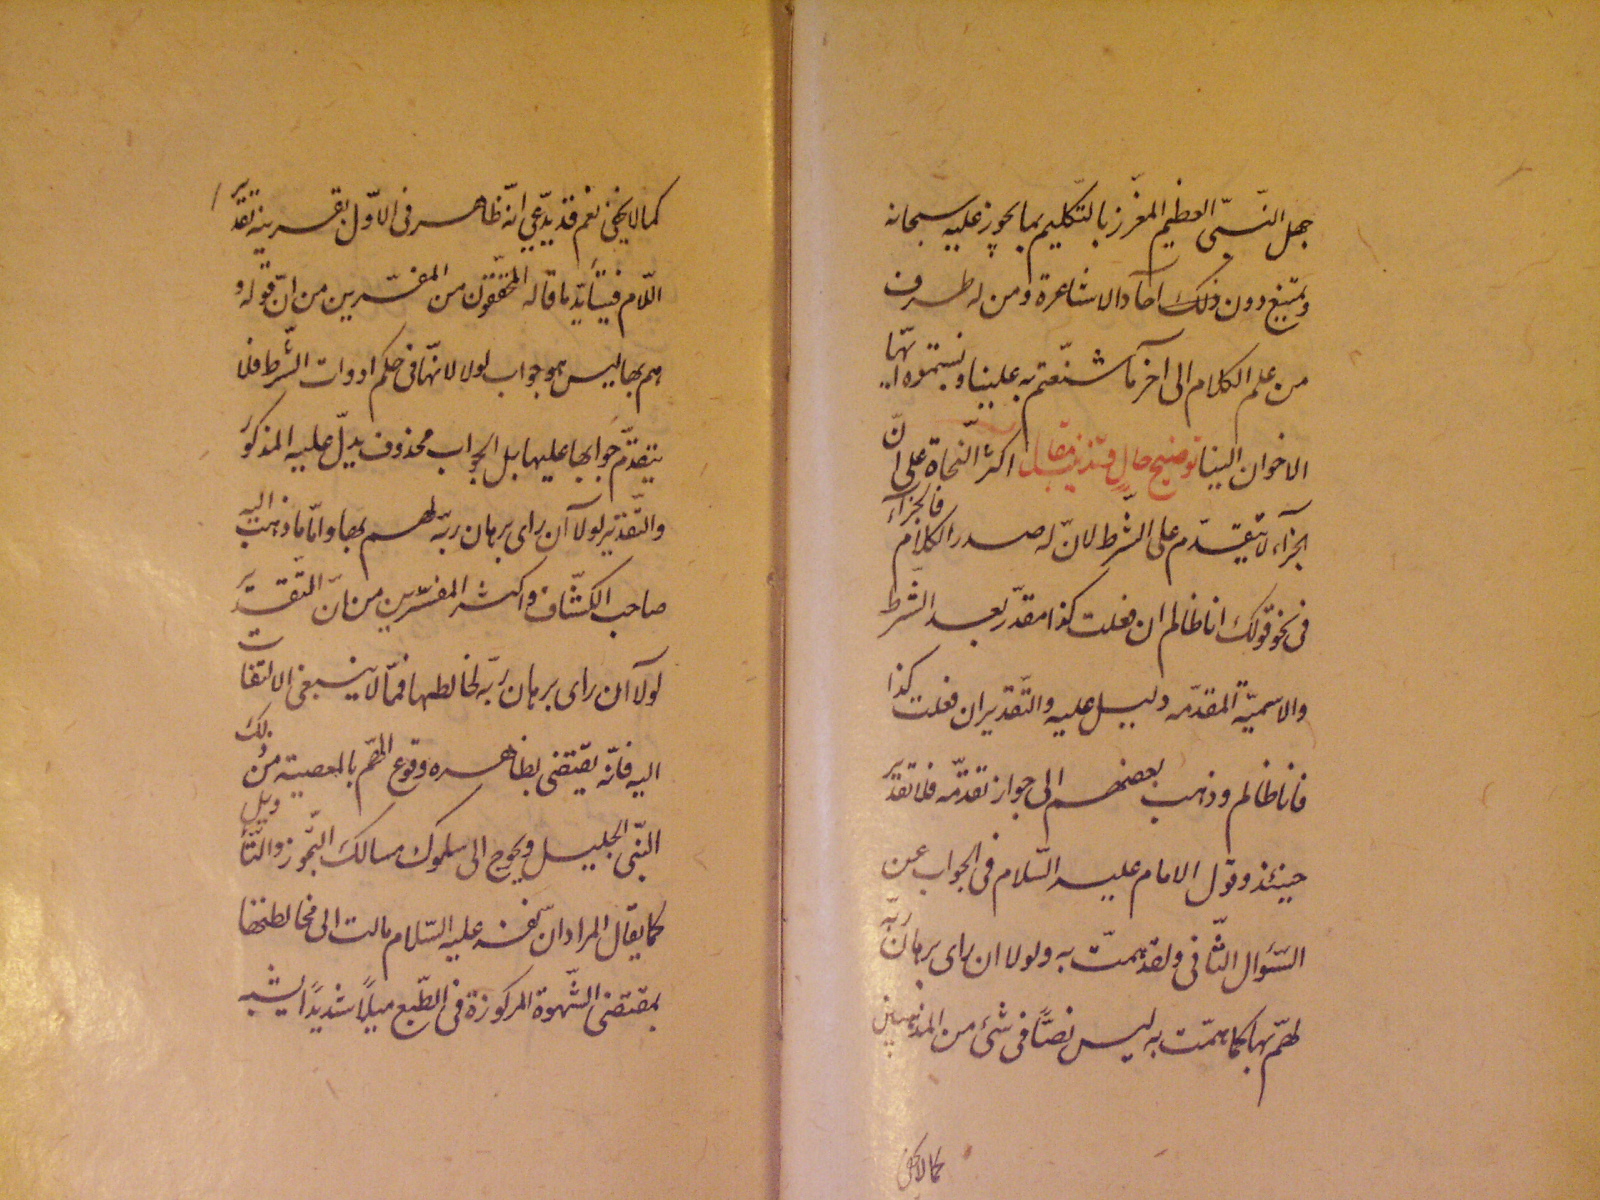 جهل النبی العظیم المعزز بالتکلیم بما یجوز علیه سبحانه
و یمتنع دون ذلک آحاد الاشاعرة و من له طرف
من علم الکلام الی آخر ما شنعتم به علینا و نسبتموه ایها
الاخوان الینا توضیح حال و تذنیب مقال اکثر النحاة علی ان
الجزاء لا یتقدم علی الشرط لان له صدر الکلام فالجزاء
فی نحو قولک انا ظالم ان فعلت کذا مقدر بعد الشرط
والاسمیة المقدمه دلیل علیه والتقدیر ان فعلت کذا
فانا ظالم و ذهب بعضهم الی جواز تقدمه فلا تقدیر
حینئذ و قول الامام علیه السلام فی الجواب عن
السؤال الثانی ولقد همت به و لولا ان رای برهان ربه
لهم بها کما همت به لیس نصا فی شئ من المذهبین
کما لا یخفی
کما لا یخفی نعم قد یدعی انه ظاهر فی الاول بقرینه تقدیر
اللام فیتأید ما قاله المحققون من المفسرین من ان قوله و
هم بها لیس هو جواب لولا لانها فی حکم ادوات الشرط فلا
یتقدم جوابها علیها بل الجواب محذوف یدل علیه المذکور
والتقدیر لولا ان رای برهان ربه لهم بها و اما ما ذهب الیه
صاحب الکشاف و اکثر المفسرین من ان التقدیر
لولا ان رای برهان ربه لخالطها فمما لا ینبغی الالتفات
الیه فانه یقتضی بظاهره وقوع الهم بالمعصیة من ذلک
النبی الجلیل و یحوج الی سلوک مسالک التجوز والتأویل
کما یقال المراد ان نفسه علیه السلام مالت الی مخالطتها
بمقتضی الشهوة المرکوزة فی الطبع میلاً شدیداً یشبه